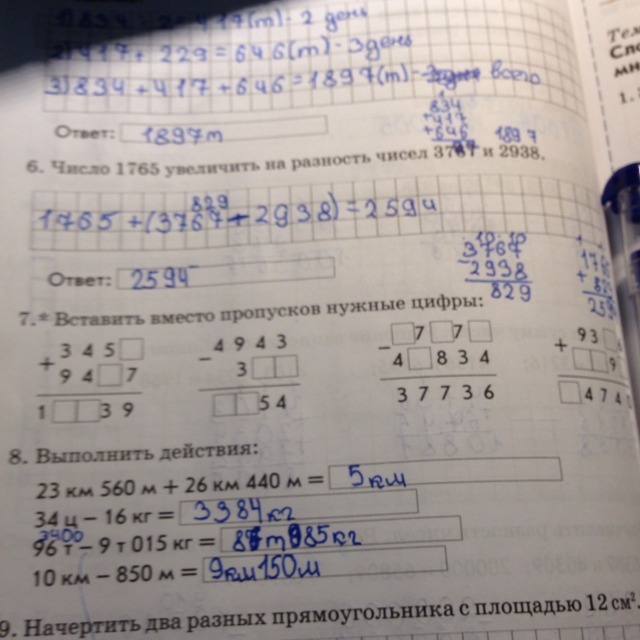 1) 834 - 417(т) - 2 день
2) 417 + 229 = 646(т) - 3 день
3) 834 + 417 + 646 = 1897(т) - всего
834
+ 417
+ 646
1897
Ответ: 1897т
6. Число 1765 увеличить на разность чисел 3767 и 2938.
829
1765 + (3767 - 2938) = 2594
Ответ: 2594
3767
2938
829
7.* Вставить вместо пропусков нужные цифры:
+ 3 4 5 □
9 4 □ 7
1 □ □ 3 9
- 4 9 4 3
3 □ □
□ □ 5 4
- □ 7 □ 7 □
4 □ 8 3 4
3 7 7 3 6
+ 9 3 □
□ □ 9
□ 4 7 4
8. Выполнить действия:
23 км 560 м + 26 км 440 м = 5км
34 ц - 16 кг = 3384кг
3400
96 т - 9 т 015 кг = 8 т 985кг
10 км - 850 м = 9км150м
9. Начертить два разных прямоугольника с площадью 12 см².
Спо
мн
1.